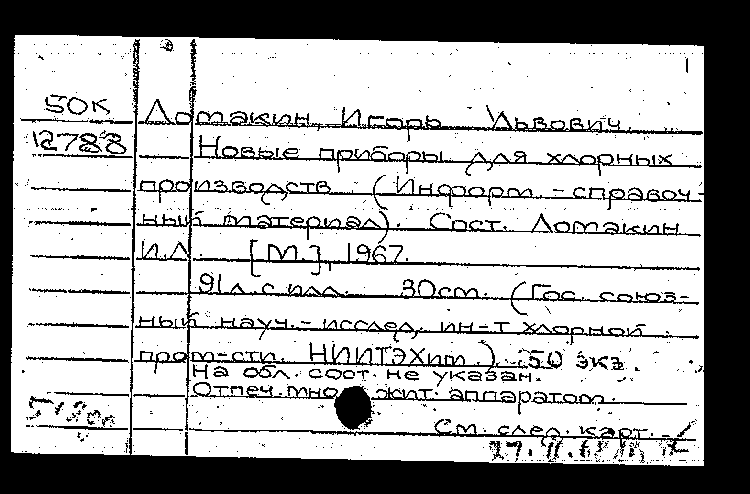 50К Ломакин, Игорь Львович.
12788 Новые приборы для хлорных
производств (Информ. - справоч-
ный материал). Сост. Ломакин
И.Л. [М.], 1967.
91 л. с илл. 30 см. (Гос. союз-
ный науч.-исслед. ин-т хлорной
пром-сти. НИИТЭХим.). 50 экз.
На обл. сост. не указан.
Отпеч. множит. аппаратом.
См. след. карт.